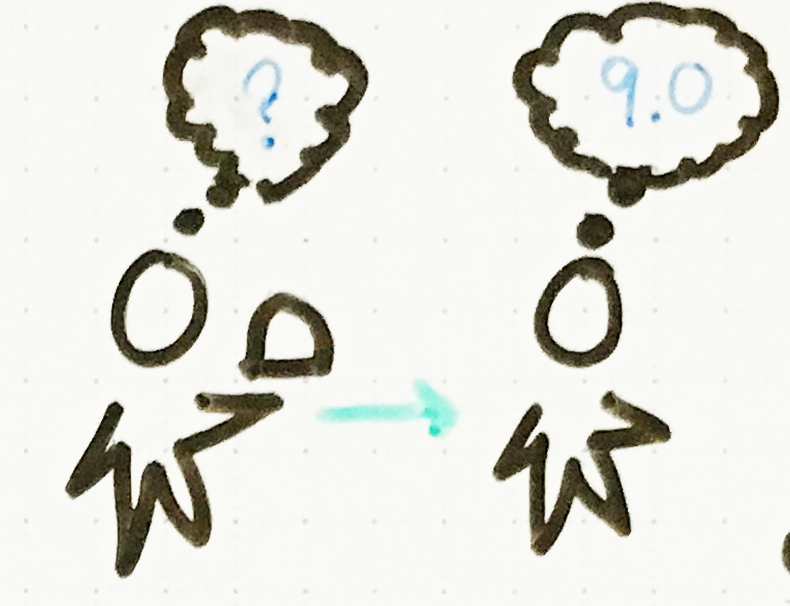 ?
9.0